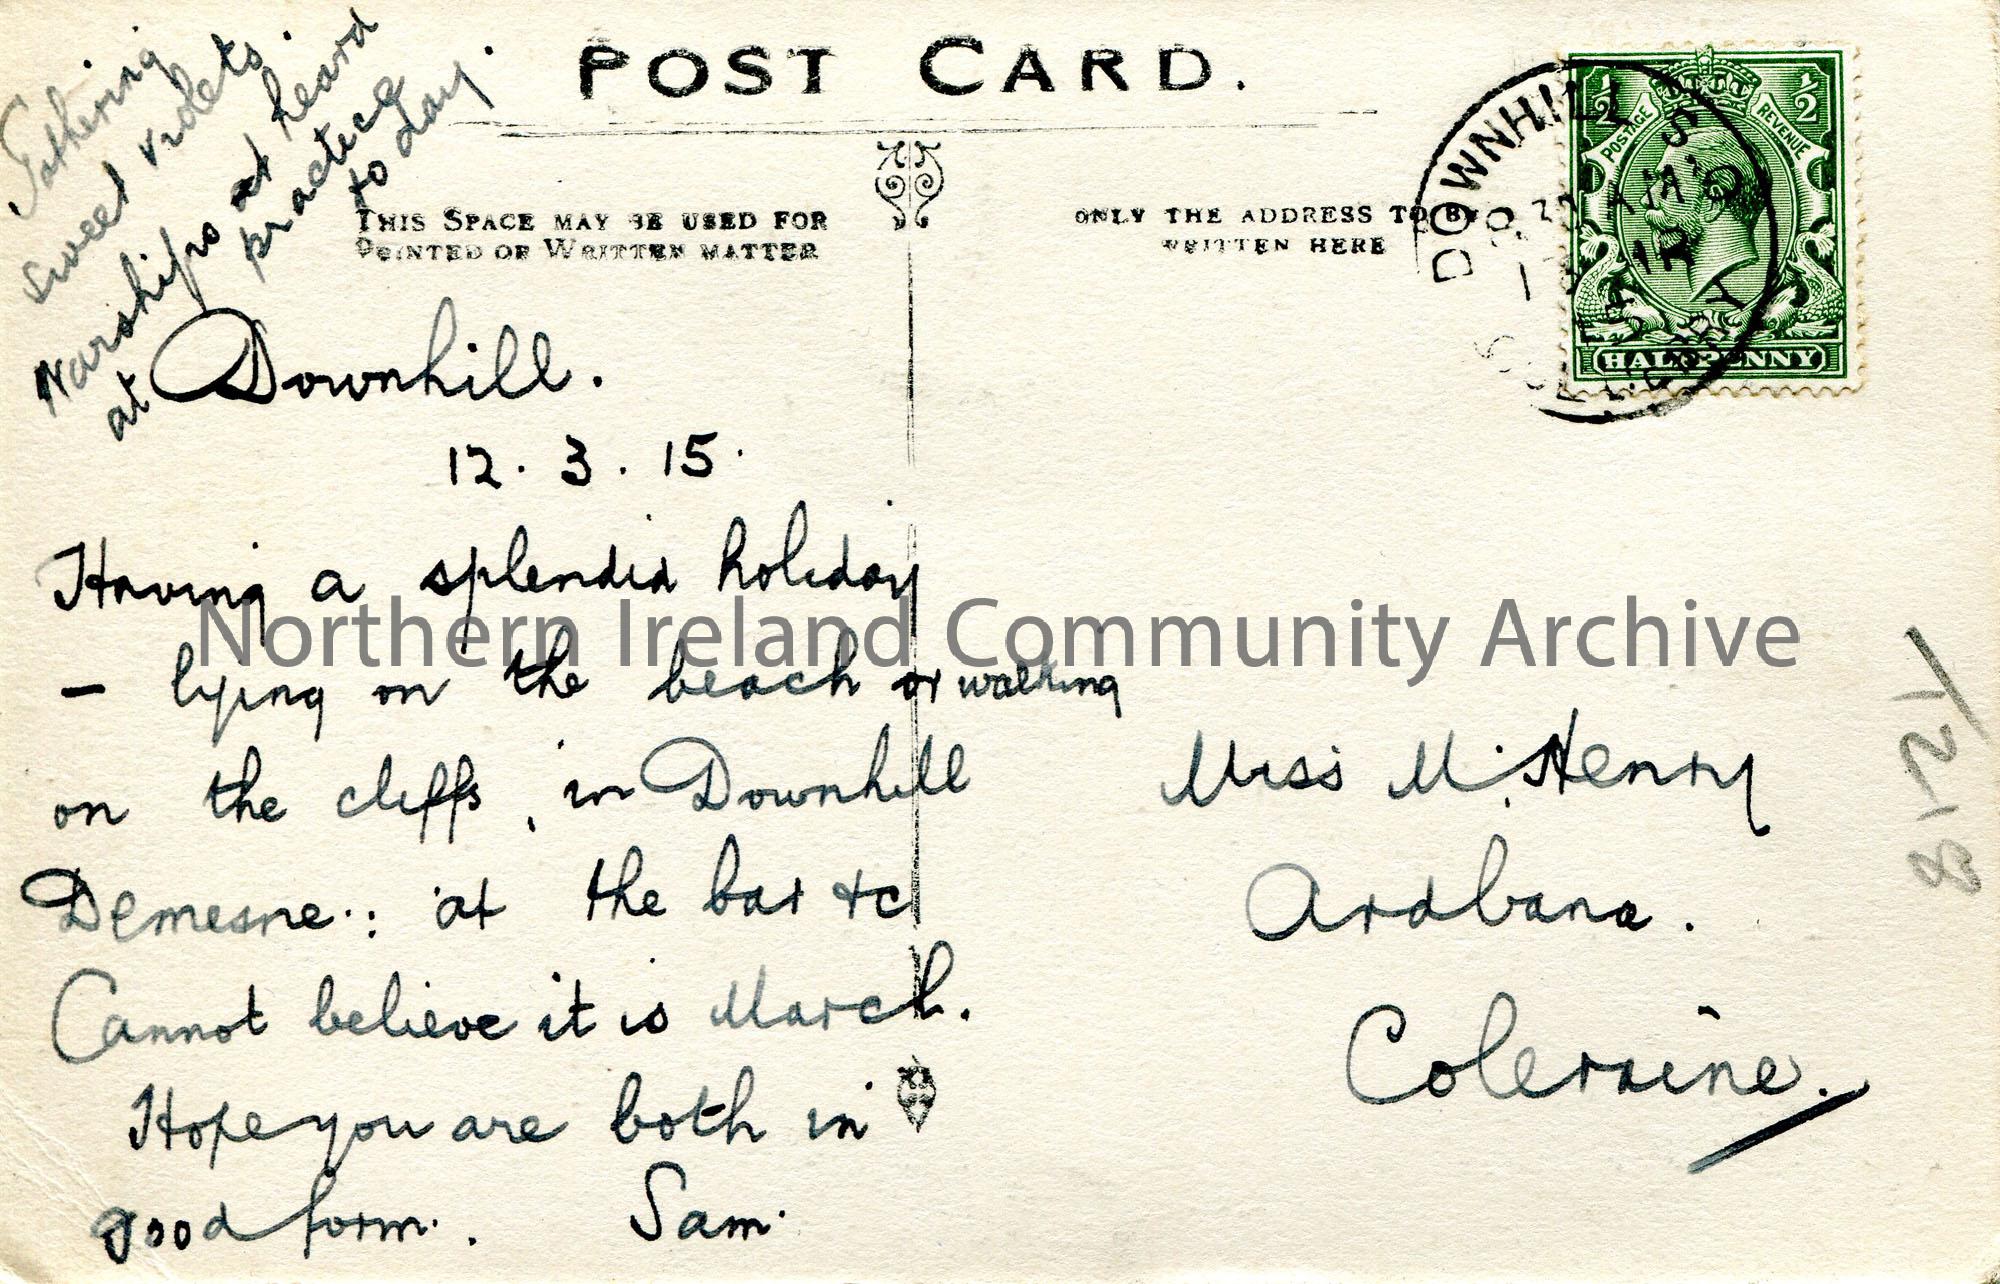 POST CARD.
THIS SPACE MAY BE USED FOR
PRINTED OR WRITTEN MATTER
ONLY THE ADDRESS TO BE
WRITTEN HERE
DOWNHILL
POSTAGE REVENUE
½ ½
HALFPENNY
Gathering
sweet violets.
Warships at heard
at practice
to day.
Downhill.
12. 3. 15.
Having a splendid holiday
- lying on the beach or walking
on the cliffs, in Downhill
Demesne: at the bar &c
Cannot believe it is March.
Hope you are both in
good form. Sam.
Miss McHenry
Ardbana.
Coleraine.
Northern Ireland Community Archive